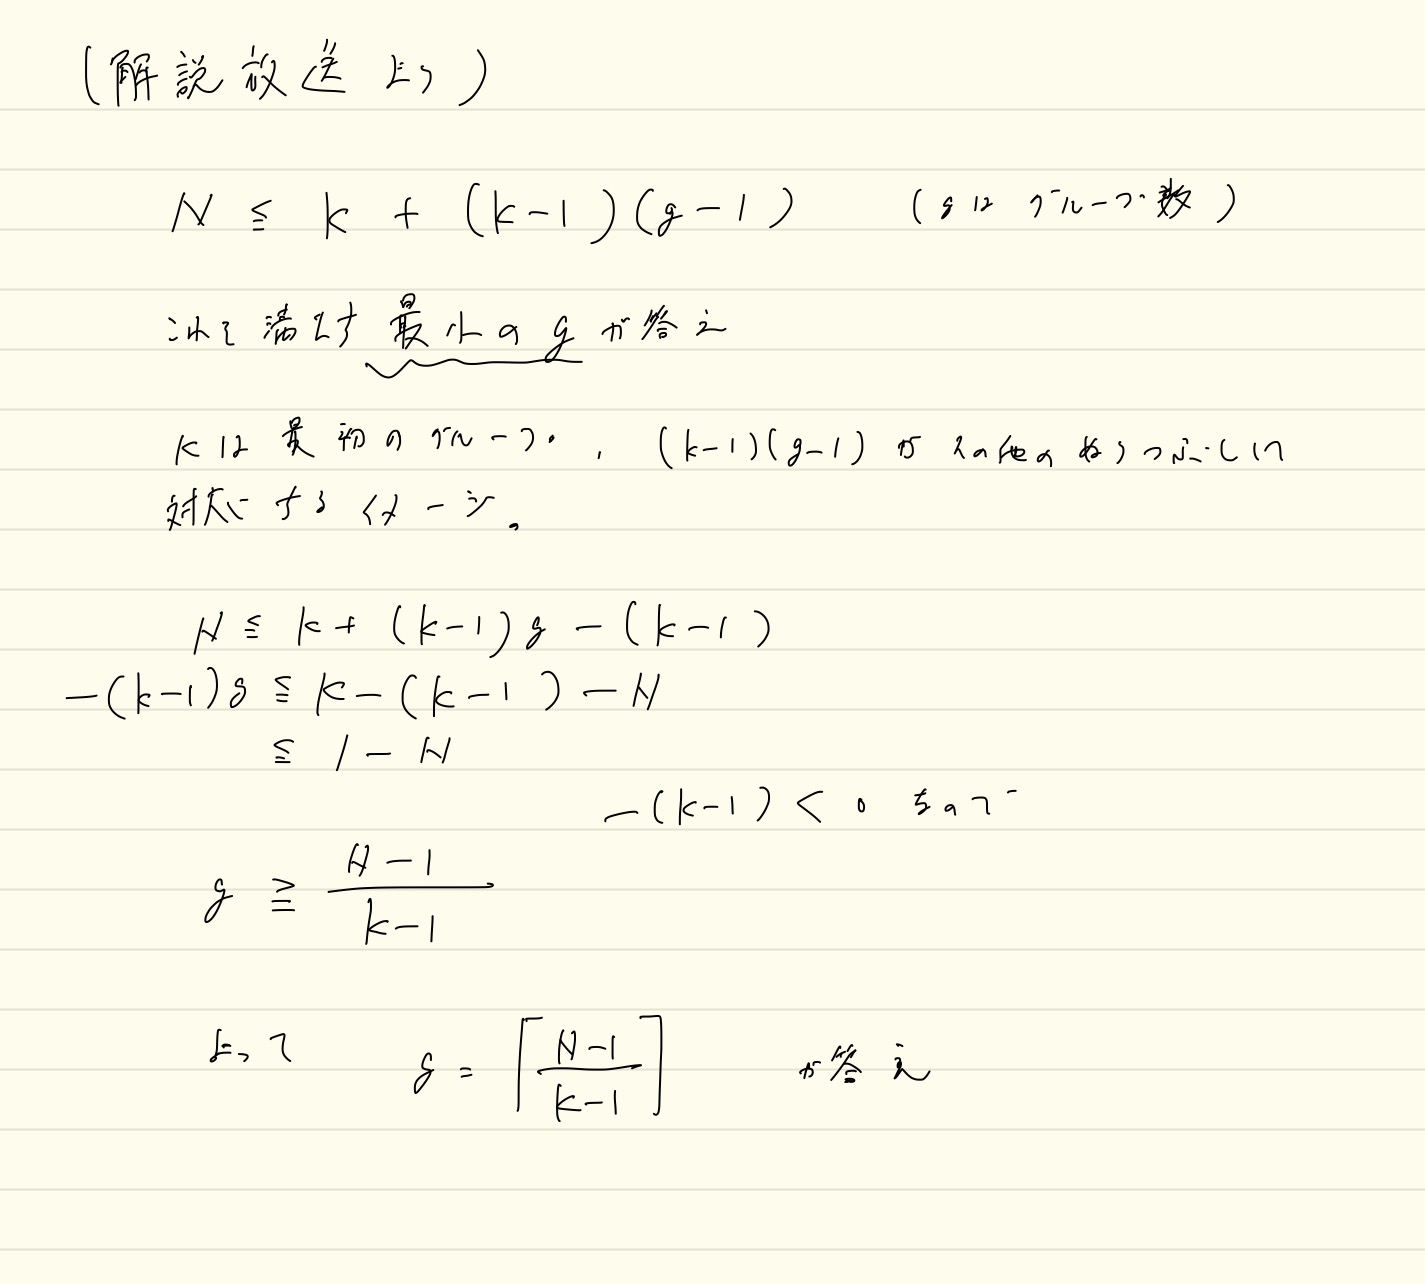 (解説放送より)
N ≦ k + (k-1)(g-1) (gは グループ数)
これを満たす 最小の g が答え
kは 最初のグループ, (k-1)(g-1) が その他のぬりつぶしに
対応する イメージ。
N ≦ k + (k-1)g - (k-1)
-(k-1)g ≦ k - (k-1) - N
≦ 1 - N
-(k-1) < 0 なので
g ≧ \frac{N-1}{k-1}
よって g = ⌈\frac{N-1}{k-1}⌉ が答え